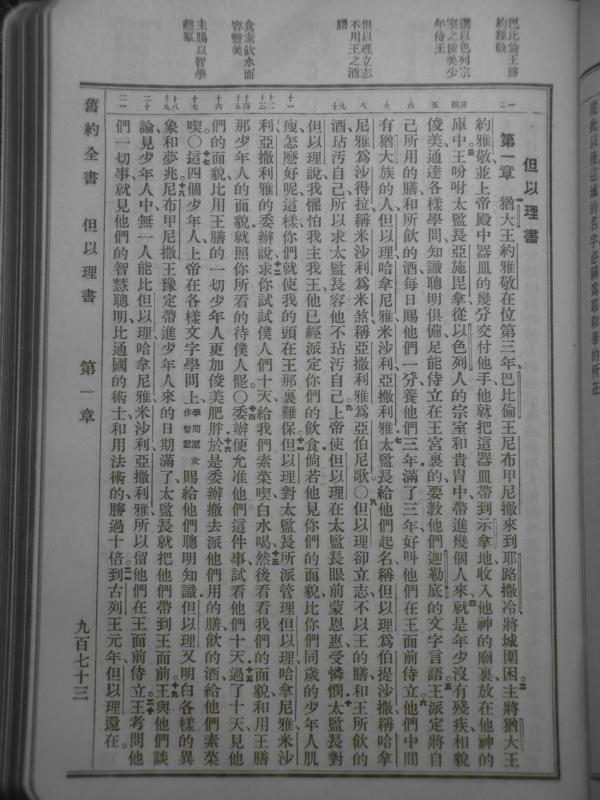 巴比倫王勝
約雅敬
選以色列宗
室之俊美少
年侍王
但以理立志
不用王之酒
膳
食素飲水面
容豐美
主賜以智學
超眾
但以理書
第一章 猶大王約雅敬在位第三年巴比倫王尼布甲尼撒來到耶路撒冷將城圍困主將猶大王
約雅敬並上帝殿中器皿的幾分交付他手他就把這器皿帶到示拿地收入他神的廟裏放在他神的
庫中王吩咐太監長亞施毘拿從以色列人的宗室和貴冑中帶進幾個人來就是年少沒有殘疾相貌
俊美通達各樣學問知識聰明俱備足能侍立在王宮裏的要教他們迦勒底的文字言語王派定將自
己所用的膳和所飲的酒每日賜他們一分養他們三年滿了三年好叫他們在王面前侍立他們中間
有猶大族的人但以理哈拿尼雅米沙利亞撒利雅太監長給他們起名稱但以理為伯提沙撒稱哈拿
尼雅為沙得拉稱米沙利為米煞稱亞撒利雅為亞伯尼歌〇但以理卻立志不以王的膳和王所飲的
酒玷污自己所以求太監長容他不玷污自己上帝使但以理在太監長眼前蒙恩惠受憐憫太監長對
但以理說我懼怕我主我王他已經派定你們的飲食倘若他見你們的面貌比你們同歲的少年人肌
瘦怎麼好呢這樣你們就使我的頭在王那裏難保但以理對太監長所派管理但以理哈拿尼雅米沙
利亞撒利雅的委辦說求你試試僕人們十天給我們素菜喫白水喝然後看看我們的面貌和用王膳
那少年人的面貌就照你所看的待僕人罷〇委辦便允准他們這件事試看他們十天過了十天見他
們的面貌比用王膳的一切少年人更加俊美肥胖於是委辦撤去派他們用的膳飲的酒給他們素菜
喫〇這四個少年人上帝在各樣文字學問上學問原文作智慧賜給他們聰明知識但以理又明白各樣的異
象和夢兆尼布甲尼撒王豫定帶進少年人來的日期滿了太監長就把他們帶到王面前王與他們談
論見少年人中無一人能比但以理哈拿尼雅米沙利亞撒利雅所以留他們在王面前侍立王考問他
們一切事就見他們的智慧聰明比通國的術士和用法術的勝過十倍到古列王元年但以理還在
舊約全書 但以理書 第一章 九百七十三
從此以後這城的名字必稱為耶和華的所在